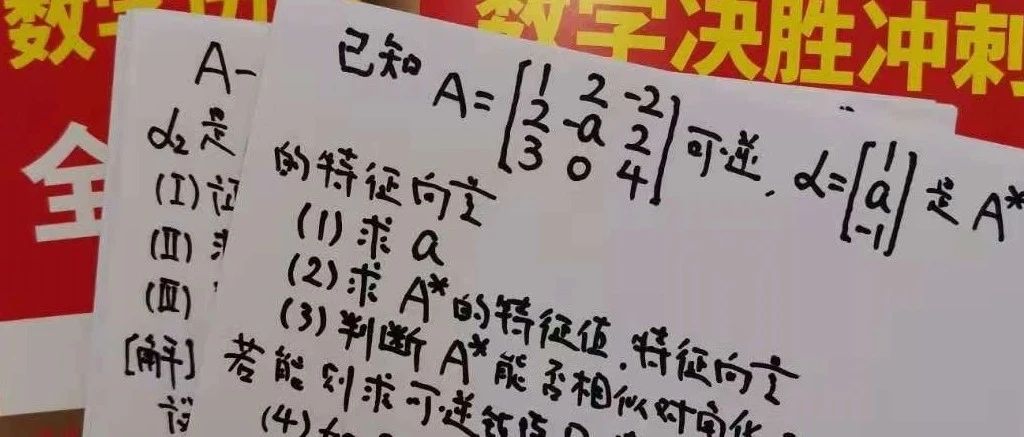 数学决胜冲刺
全
A-
α₂是
(I)证
(II)
(III)
[解]
已知 A=[1 2 -2; 2 -a 2; 3 0 4]可逆, α=[1; a; -1]是A*
的特征向量
(1)求 a
(2)求 A*的特征值.特征向量
(3)判断 A*能否相似对角化
若能则求可逆
(4)